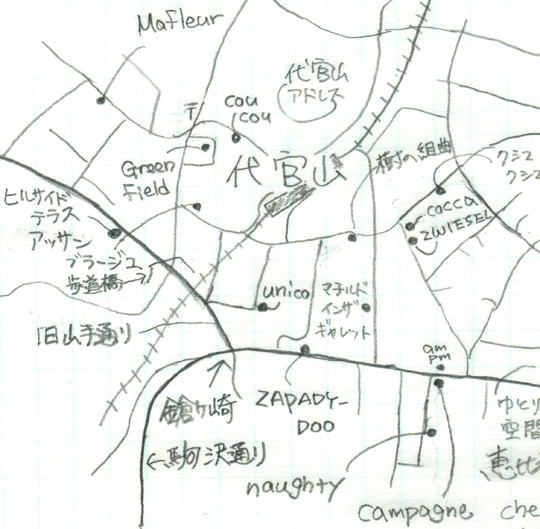 Mafleur
代官山
アドレス
〒
cou
cou
Green
Field
代官山
樹の組曲
クシュ
クシュ
cocca
ZWIESEL
ヒルサイド
テラス
アッサン
ブラージュ
歩道橋→
unico
マチルド
インザ
ギャレット
旧山手通り
am
pm
鎗ヶ崎
ZAPADY-
DOO
ゆとり
空間
恵比
←駒沢通り
naughty
campagne
che